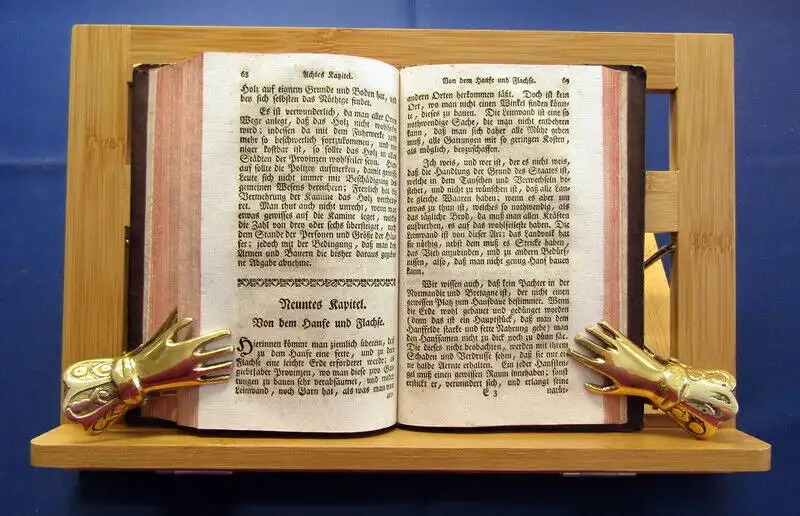 68 Achtes Kapitel.
Holz auf eignem Grunde und Boden hat, und
bey sich selbsten das Nöthige findet.
Es ist verwunderlich, da man aller Orten
Wege anlegt, daß das Holz nicht wohlfeiler
wird; indessen da mit dem Fuhrwerke nicht
mehr so beschwerlich fortzukommen, und we-
niger kostbar ist, so sollte das Holz in allen
Städten der Provinzen wohlfeiler seyn. Hier-
auf sollte die Polizey aufmerken, damit gewisse
Leute sich nicht immer mit Beschädigung des
gemeinen Wesens bereichern; Freylich hat die
Vermehrung der Kamine das Holz vertheu-
ret. Man thut auch nicht unrecht, wenn man
etwas gewisses auf die Kamine leget, welche
die Zahl von drey oder sechs übersteiget, nach
dem Stande der Personen und Größe der Häu-
ser; jedoch mit der Bedingung, daß man den
Armen und Bauern die bisher daraus gegebe-
ne Abgabe abnehme.
Neuntes Kapitel.
Von dem Hanfe und Flachse.
Hierinnen kömmt man ziemlich überein, daß
zu dem Hanfe eine fette, und zu dem
Flachse eine leichte Erde erfordert werde: es
giebt aber Provinzen, wo man diese zwo Gat-
tungen zu bauen sehr verabsäumet, und weder
Leinwand, noch Garn hat, als was man von
Von dem Hanfe und Flachse. 69
andern Orten herkommen läßt. Doch ist kein
Ort, wo man nicht einen Winkel finden könn-
te, dieses zu bauen. Die Leinwand ist eine so
nothwendige Sache, die man nicht entbehren
kann, daß man sich daher alle Mühe geben
muß, alle Gattungen mit so geringen Kosten,
als möglich, beyzuschaffen.
Ich weis, und wer ist, der es nicht weis,
daß die Handlung der Grund des Staates ist,
welche in dem Tauschen und Verwechseln be-
stehet, und nicht zu wünschen ist, daß alle Lan-
de gleiche Waaren haben; wenn es aber um
etwas zu thun ist, welches so nothwendig, als
das tägliche Brod, da muß man allen Kräften
aufbiethen, es auf das wohlfeileste haben. Die
Leinwand ist von dieser Art: das Landvolk hat
sie nöthig, nebst dem muß es Stricke haben,
das Vieh anzubinden, und zu andern Bedürf-
nissen, also, daß man nicht genug Hanf bauen
kann.
Wir wissen auch, daß kein Pachter in der
Normandie und Bretagne ist, der nicht einen
gewissen Platz zum Hanfbaue bestimmet. Wenn
die Erde wohl gebauet und gedünget worden
(denn das ist ein Hauptstück, daß man dem
Hanffelde starke und fette Nahrung gebe) muß
den Hanfsamen nicht zu dick noch zu dünn säe.
Die dieses nicht beobachten, werden mit ihrem
Schaden und Verdrusse sehen, daß sie nur ei-
ne halbe Aernte erhalten. Ein jeder Hanfsten-
gel muß einen gewissen Raum innehaben; sonst
ersticket er, verwundert sich, und erlangt seine
E 3 natür-